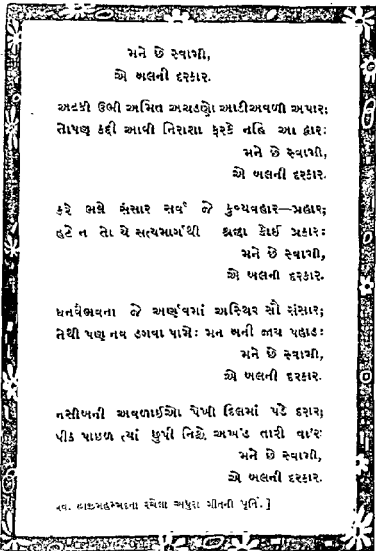 મને છે સ્વામી,
એ બલની દરકાર.
અટકી ઉભી અમિત અચડણો આડીઅવળી અપાર;
તોપણ કદી આવી નિરાશા ફરકે નહિ આ દ્વાર:
મને છે સ્વામી,
એ બલની દરકાર.
કરે ભલે સંસાર સર્વ જે કુવ્યવહાર—પ્રહાર;
હટે ન તો યે સત્યમાર્ગથી શ્રદ્ધા કોઈ પ્રકાર:
મને છે સ્વામી,
એ બલની દરકાર.
ધનવૈભવના જે અર્ણવમાં અસ્થિર સૌ સંસાર;
તેથી પણ નવ ડગવા પામે: મન બની જાય પહાડ:
મને છે સ્વામી,
એ બલની દરકાર.
નસીબની અવળાઈઓ પેખી દિલમાં પડે દરાર;
પીક પાછળ ત્યાં છુપી નિશ્ચે અખંડ તારી વ્હાર:
મને છે સ્વામી,
એ બલની દરકાર.
સ્વ. હાજીમહમ્મદના રચેલા અધુરા ગીતની પૂર્તિ. ]